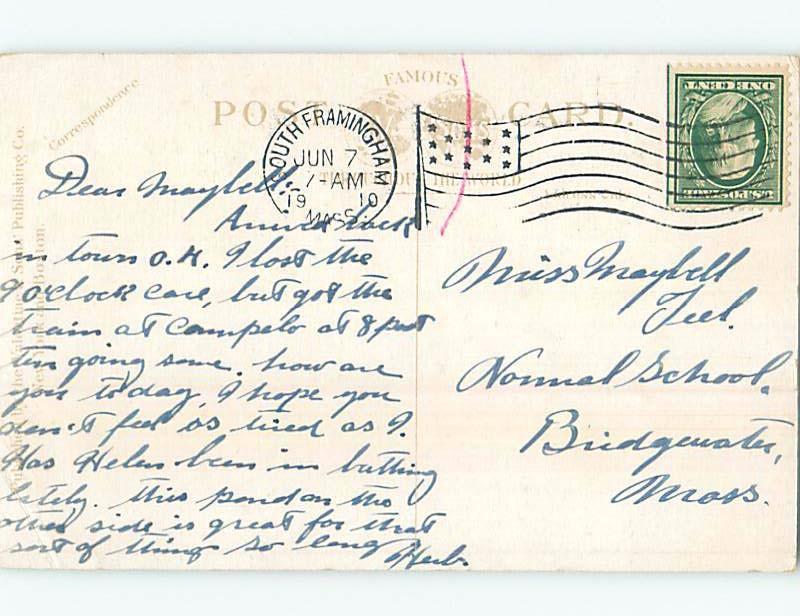 Correspondence
FAMOUS
POST CARD.
THE WORLD
SOUTH FRAMINGHAM
JUN 7
7-AM
19 10
MASS.
ONE CENT
U.S. POSTAGE
Publishing Co.
Dear Maybell:
Arrived back
in town O.K. I lost the
9 o'clock care, but got the
train at Campelo at 8 past
ten going some. how are
you today, I hope you
don't feel as tired as I.
Has Helen been in bathing
lately. this pond on the
other side is great for that
sort of thing so long
Herb.
Miss Maybell
Teel.
Normal School.
Bridgewater,
Mass.